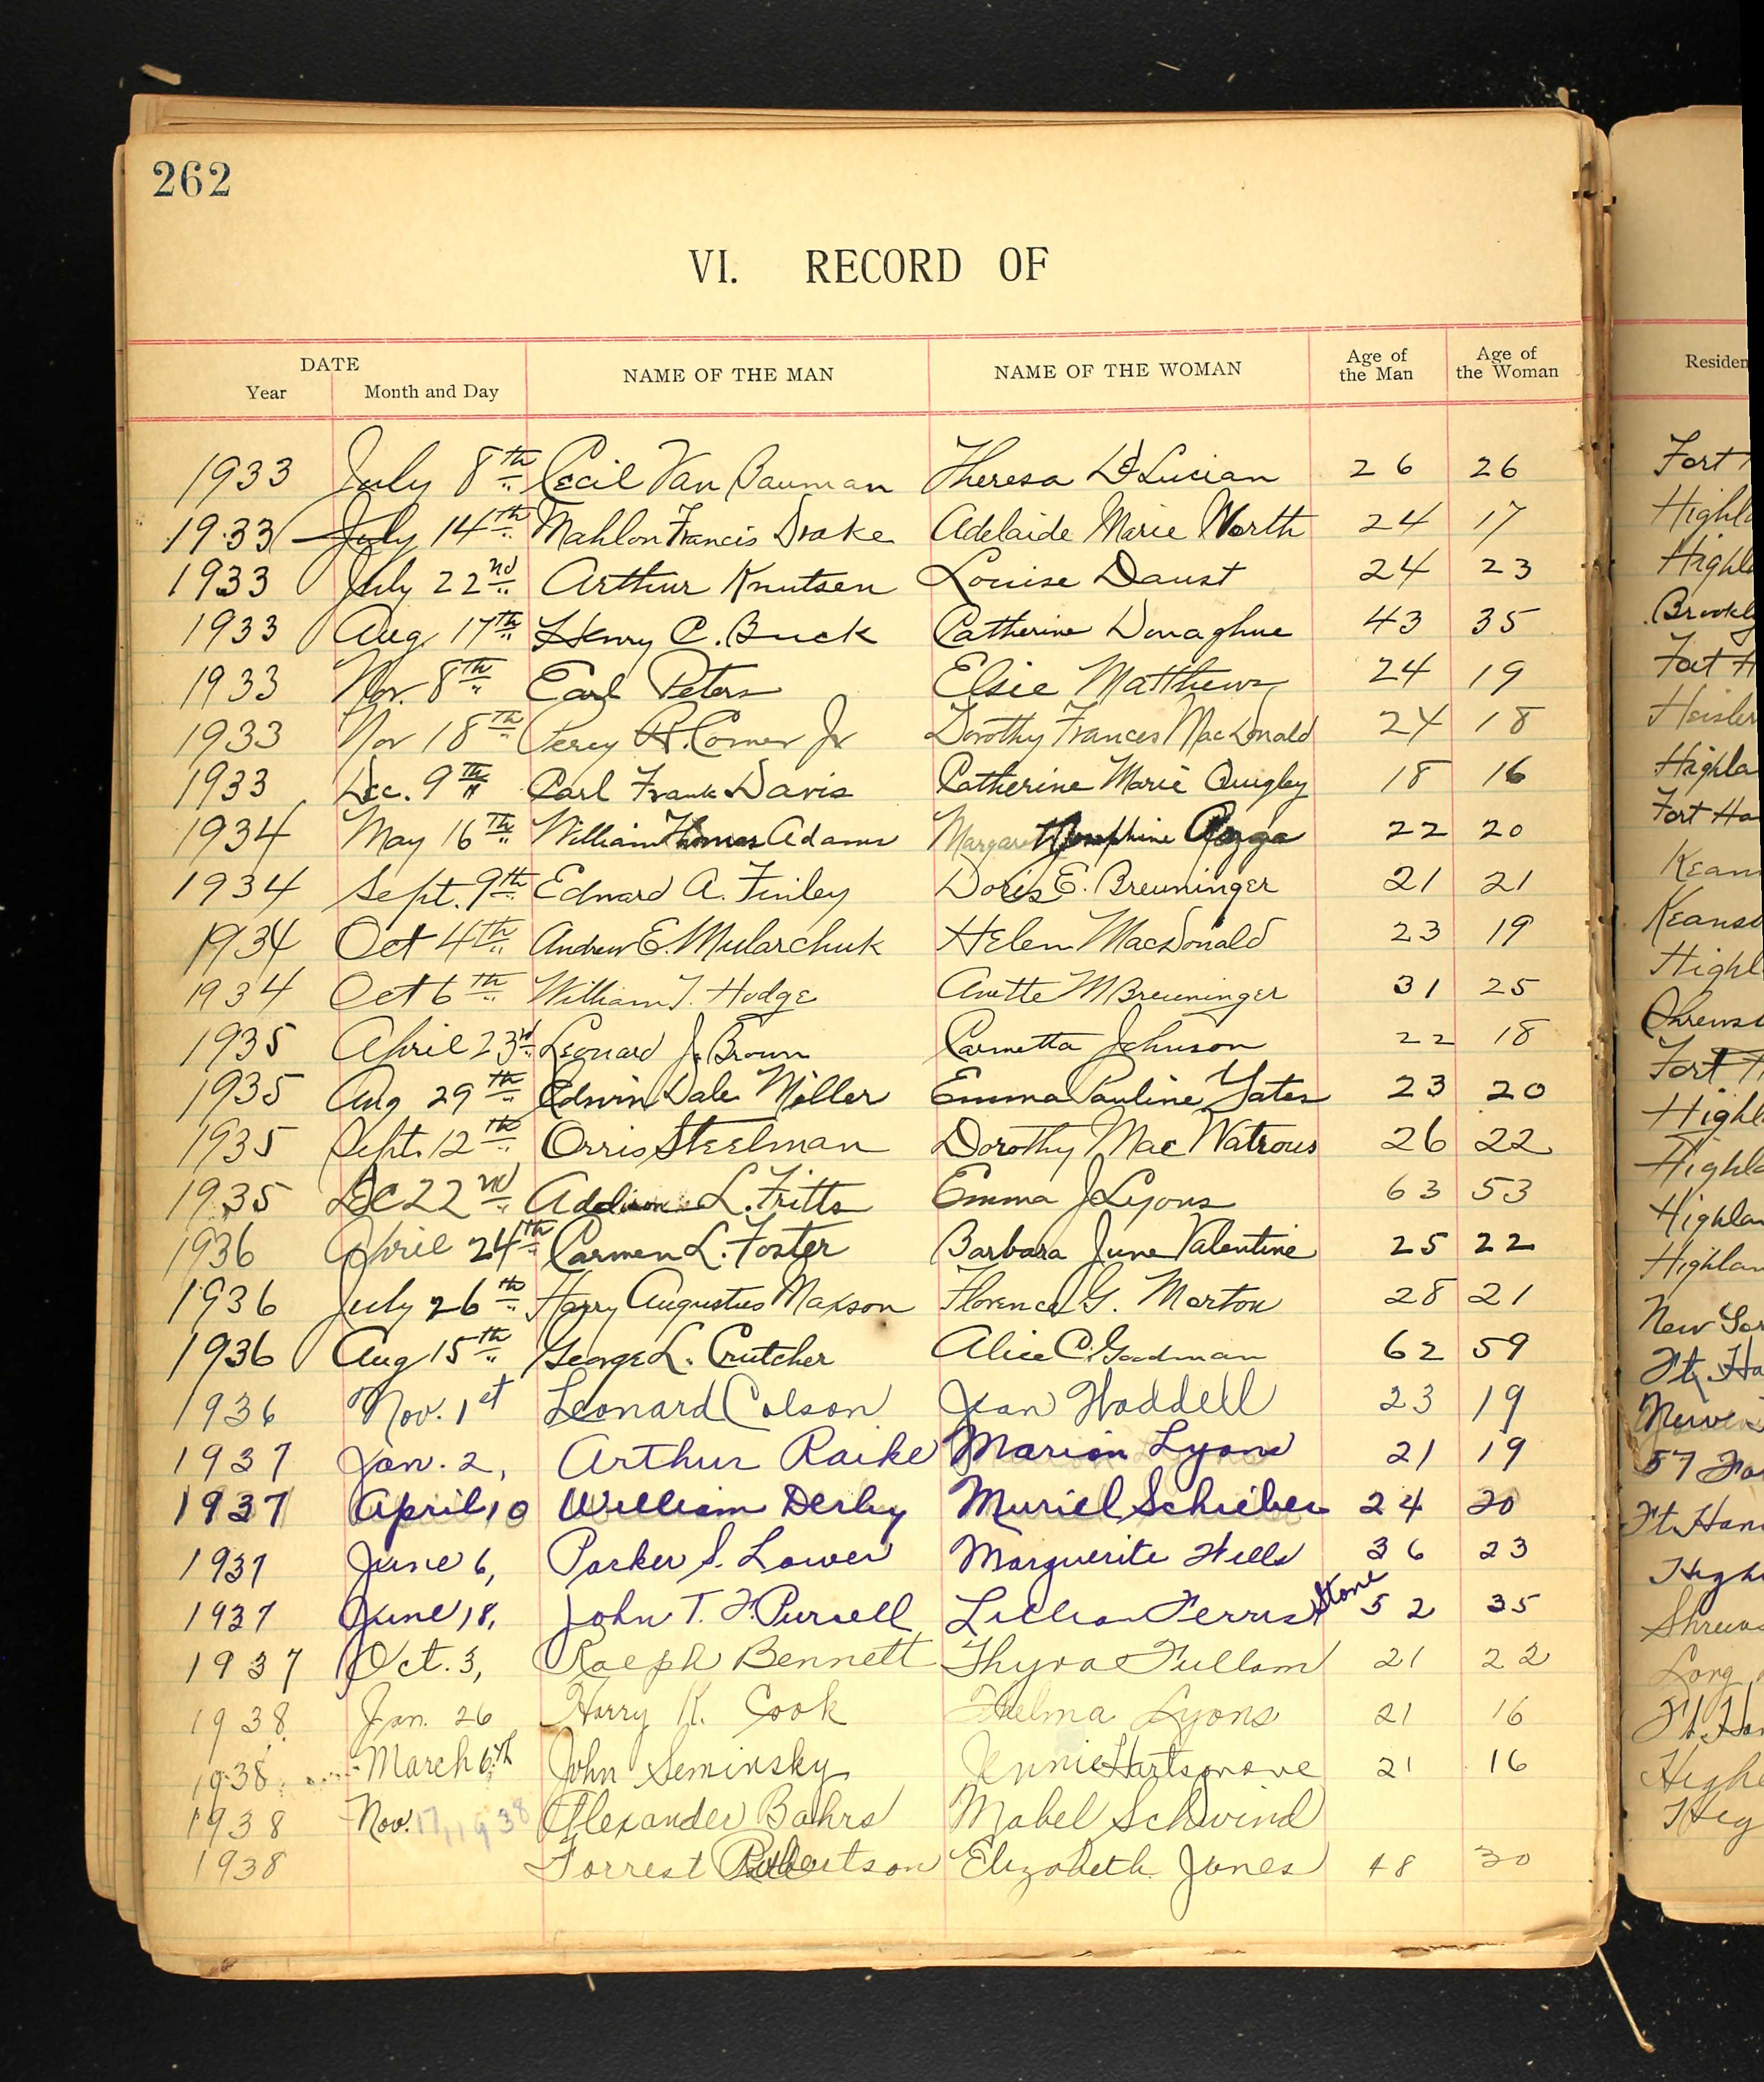 262
VI. RECORD OF
DATE
Year Month and Day NAME OF THE MAN NAME OF THE WOMAN Age of the Man Age of the Woman Residen
1933 July 8th Cecil Van Bauman Theresa DeLucian 26 26 Fort
1933 July 14th Mahlon Francis Drake Adelaide Marie Worth 24 17 Highla
1933 July 22nd Arthur Knutsen Louise Daust 24 23 Highla
1933 Aug 17th Henry C. Buck Catherine Donaghue 43 35 Brookly
1933 Nov. 8th Earl Peters Elsie Matthews 24 19 Fort H
1933 Nov 18th Percy R. Comer Jr Dorothy Frances MacDonald 24 18 Heisler
1933 Dec. 9th Carl Frank Davis Catherine Marie Quigley 18 16 Highla
1934 May 16th William Thomas Adams Margaret Josephine 22 20 Fort Ha
1934 Sept. 9th Edward A. Finley Doris E. Breuninger 21 21 Kean
1934 Oct 4th Andrew E. Mularchuk Helen MacDonald 23 19 Keansb
1934 Oct 6th William T. Hodge Anette M Breuninger 31 25 Highl
1935 April 23rd Leonard J. Brown Carmetta Johnson 22 18 Shrews
1935 Aug 29th Edwin Dale Miller Emma Pauline Yates 23 20 Fort H
1935 Sept. 12th Orris Steelman Dorothy Mae Watrous 26 22 Highl
1935 Dec 22nd Addison L. Fritts Emma J Lyons 63 53 Highla
1936 April 24th Carmen L. Foster Barbara June Valentine 25 22 Highlan
1936 July 26th Harry Augustus Maxson Florence G. Morton 28 21 Highlan
1936 Aug 15th George L. Crutcher Alice C. Goodman 62 59 New Yor
1936 Nov. 1st Leonard Colson Jean Waddell 23 19 Ft. Ha
1937 Jan. 2, Arthur Raike Marion Lyons 21 19
1937 April 10 William Derby Muriel Schieber 24 20 57
1937 June 6, Parker S. Lower Marguerite Wells 36 23 Ft. Han
1937 June 18, John T. F. Pursell Lillian Ferris Stone 52 35 High
1937 Oct. 3, Ralph Bennett Thyra Fullam 21 22 Shrews
1938 Jan. 26 Harry K. Cook Thelma Lyons 21 16 Long
1938 March 6th John Seminsky Jennie Hartsgrove 21 16 Ft. Han
1938 Nov. 17, 1938 Alexander Bahrs Mabel Schwind Highl
1938 Forrest Robertson Elizabeth Jones 48 30 Hig